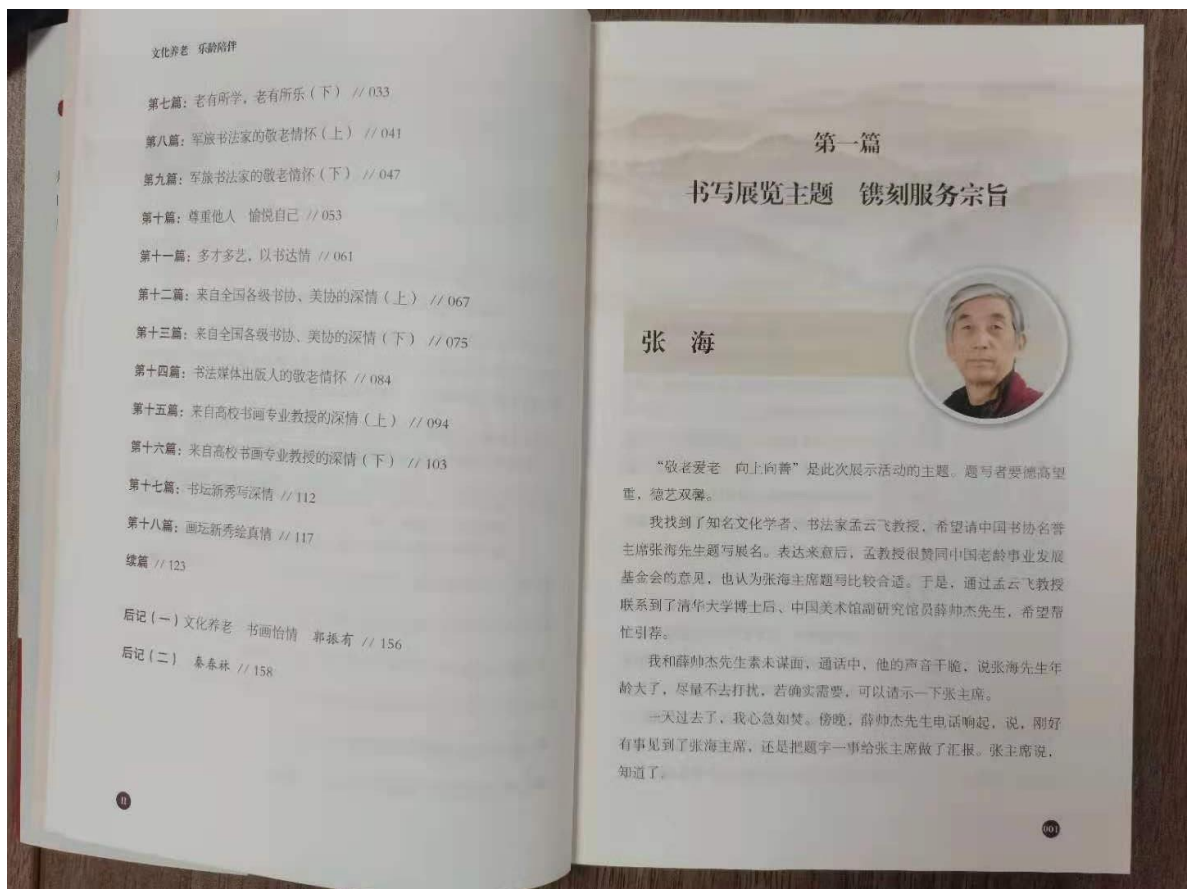 文化养老 乐龄陪伴
第七篇：老有所学，老有所乐（下） // 033
第八篇：军旅书法家的敬老情怀（上） // 041
第九篇：军旅书法家的敬老情怀（下） // 047
第十篇：尊重他人 愉悦自己 // 053
第十一篇：多才多艺，以书达情 // 061
第十二篇：来自全国各级书协、美协的深情（上） // 067
第十三篇：来自全国各级书协、美协的深情（下） // 075
第十四篇：书法媒体出版人的敬老情怀 // 084
第十五篇：来自高校书画专业教授的深情（上） // 094
第十六篇：来自高校书画专业教授的深情（下） // 103
第十七篇：书坛新秀写深情 // 112
第十八篇：画坛新秀绘真情 // 117
续篇 // 123
后记（一）文化养老 书画怡情 郭振有 // 156
后记（二） 秦春林 // 158
II
第一篇
书写展览主题 镌刻服务宗旨
张 海
“敬老爱老 向上向善”是此次展示活动的主题。题写者要德高望
重，德艺双馨。
我找到了知名文化学者、书法家孟云飞教授，希望请中国书协名誉
主席张海先生题写展名。表达来意后，孟教授很赞同中国老龄事业发展
基金会的意见，也认为张海主席题写比较合适。于是，通过孟云飞教授
联系到了清华大学博士后、中国美术馆副研究馆员薛帅杰先生，希望帮
忙引荐。
我和薛帅杰先生素未谋面，通话中，他的声音干脆，说张海先生年
龄大了，尽量不去打扰，若确实需要，可以请示一下张主席。
一天过去了，我心急如焚。傍晚，薛帅杰先生电话响起，说，刚好
有事见到了张海主席，还是把题字一事给张主席做了汇报。张主席说，
知道了。
001